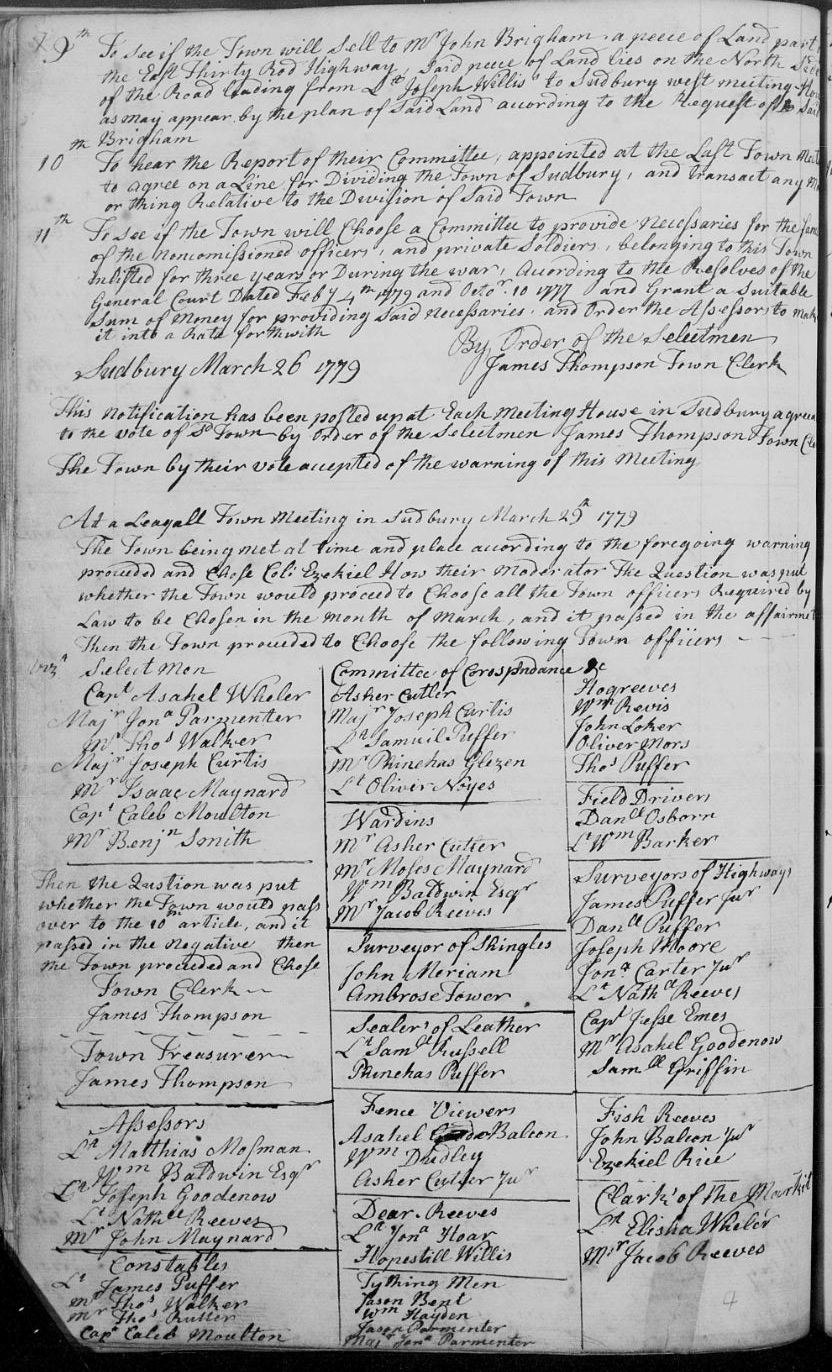 9th To see if the Town will Sell to Mr John Brigham a peece of Land part
the East Thirty Rod Highway, Said peece of Land lies on the North Side
of the Road leading from Lt Joseph Willis's to Sudbury west meeting-Hou
as may appear by the plan of Said Land acording to the Request of Said
Brigham
10th To hear the Report of their Committee, appointed at the Last Town Meet
to agree on a Line for Dividing the Town of Sudbury, and transact any
or thing Relative to the Division of Said Town
11th To see if the Town will Choose a Committee to provide Necessaries for the fam
of the noncomissioned officers, and private Soldiers, belonging to this Town
Inlisted for three years or During the war, Acording to the Resolves of the
General Court Dated Feby 4th 1779 and Octor 10 1777 and Grant a Suitable
Sum of Money for providing Said necessaries, and Order the Assessors to make
it into a Rate forthwith
By Order of the Selectmen
Sudbury March 26 1779 James Thompson Town Clerk
This notification has been posted up at Each Meeting House in Sudbury agreea
to the vote of Sd Town by Order of the Selectmen James Thompson Town Cle
The Town by their vote accepted of the warning of this Meeting
At a Leagall Town Meeting in Sudbury March 29th 1779
The Town being met at time and place acording to the foregoing warning
proceded and Chose Colo Ezekiel How their Moderator The Question was put
whether the Town would proceed to Choose all the Town officers Required by
Law to be Chosen in the month of March, and it passed in the affairmet
Then the Town proceded to Choose the following Town officers
Select Men
Capt Asahel Wheler
Majr Jona Parmenter
Mr Thos Walker
Majr Joseph Curtis
Mr Isaac Maynard
Capt Caleb Moulton
Mr Benjn Smith
Then the Qustion was put
whether the Town would pass
over to the 10th article, and it
passed in the negative then
the Town proceded and Chose
Town Clerk
James Thompson
Town Treasurer
James Thompson
Assessors
Lt Matthias Mosman
Wm Baldwin Esqr
Lt Joseph Goodenow
Lt Nathll Reeves
Mr John Maynard
Constables
Lt James Puffer
Mr Thos Walker
Mr Thos Rutter
Capt Caleb Moulton
Committee of Corospndance &c
Asher Cutler
Majr Joseph Curtis
Lt Samuil Puffer
Mr Phinehas Glezen
Lt Oliver Noyes
Wardins
Mr Asher Cutter
Mr Moses Maynard
Wm Baldwin Esqr
Mr Jacob Reeves
Surveyor of Shingles
John Meriam
Ambrose Tower
Sealers of Leather
Lt Samll Russell
Phinehas Puffer
Fence Viewers
Asahel Balcon
Wm Dudley
Asher Cutler Jur
Dear Reeves
Lt Jona Hoar
Hopestill Willis
Tything Men
Jason Bent
Wm Hayden
Jason Parmenter
Majr Jona Parmenter
Hogreeves
Wm Revis
John Loker
Oliver Mors
Thos Puffer
Field Drivers
Danll Osborn
Lt Wm Barker
Surveyors of Highways
James Puffer Jur
Danll Puffer
Joseph Moore
Jona Carter Jur
Lt Nathll Reeves
Capt Jesse Emes
Mr Asahel Goodenow
Samll Griffin
Fish Reeves
John Balcon Jur
Ezekiel Rice
Clark of the Markit
Lt Elisha Wheler
Mr Jacob Reeves
4